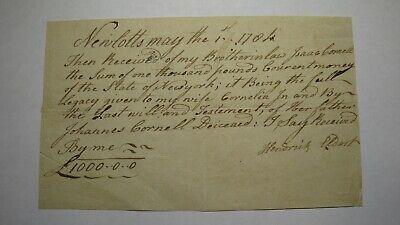 Newlotts may the 1st 1784
Then Received of my Brotherinlaw Isaac Cornell
the Sum of one thousand pounds Courent money
of the State of Newyork; it Being the full
Legacy given to my wife Cornelia In and By
the Last will and Testement, of Her father
Johannes Cornell Deiceased: I Say Received
By me
Hendrick
£1000-0-0